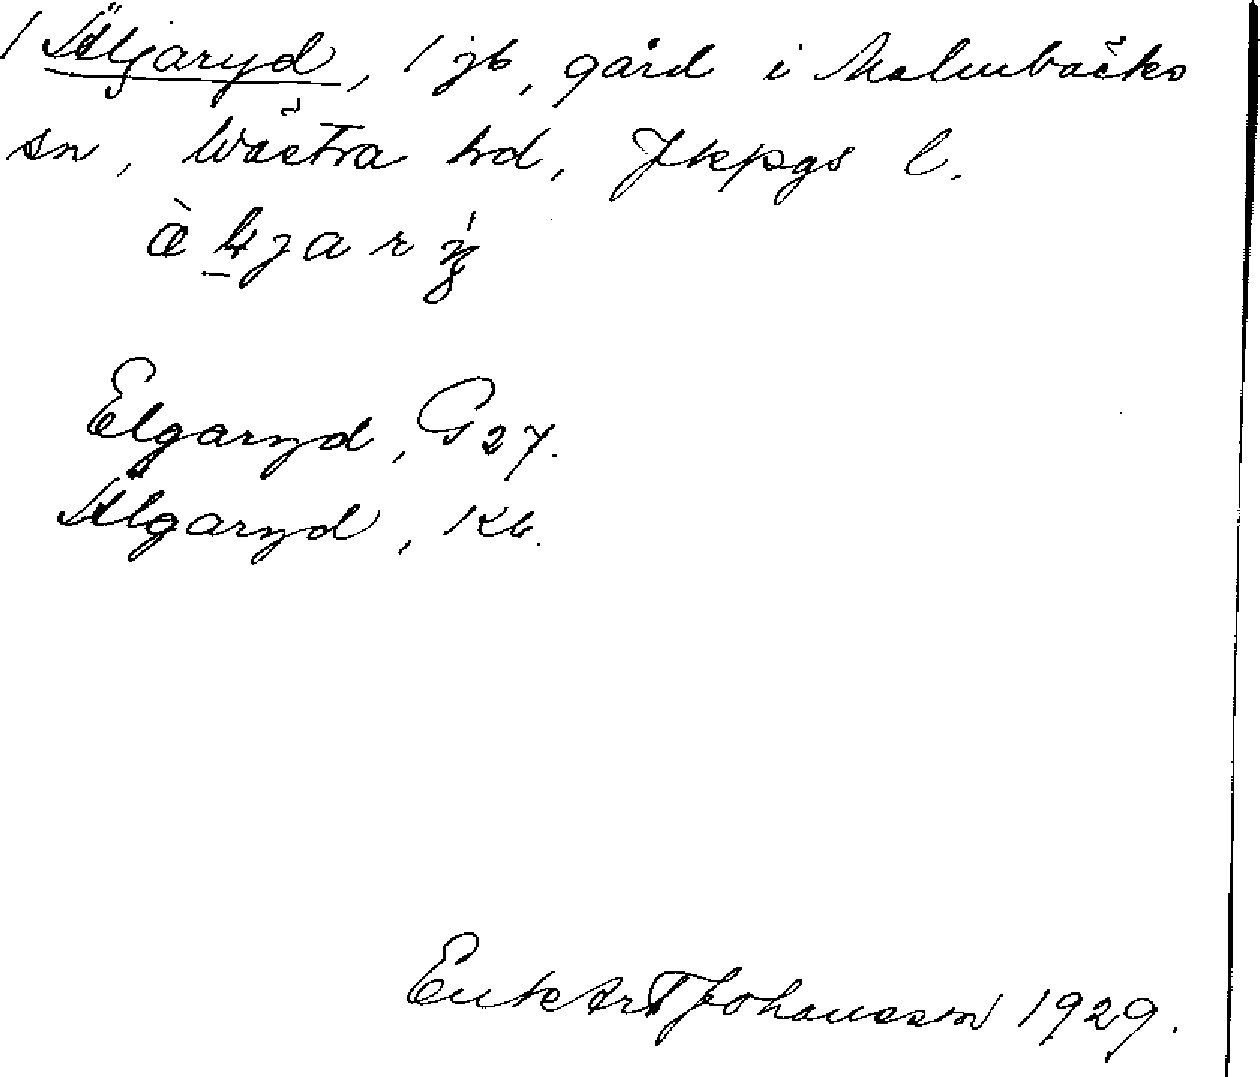 / Äljaryd, 1 jb, gård i Malmbäcks
sn, Västra hd, Jkpgs l.
Elgaryd, G 27.
Älgaryd, Kb.
Enl. Johansson 1929.